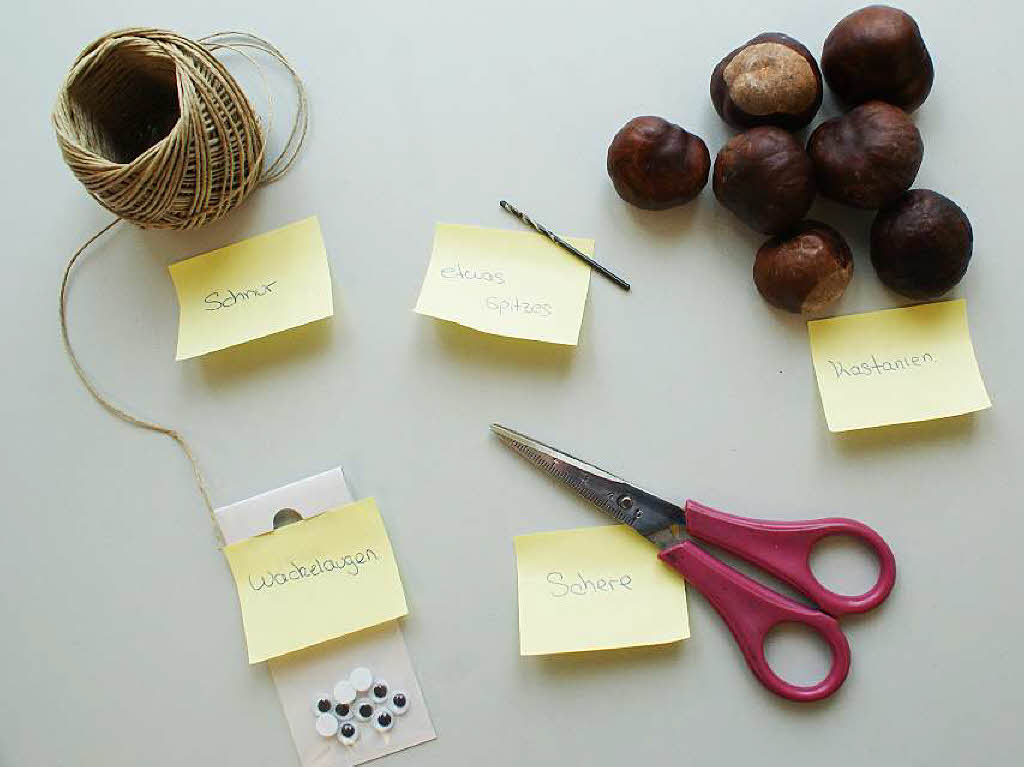 Schnur
etwas
spitzes
Kastanien
Wackelaugen
Schere